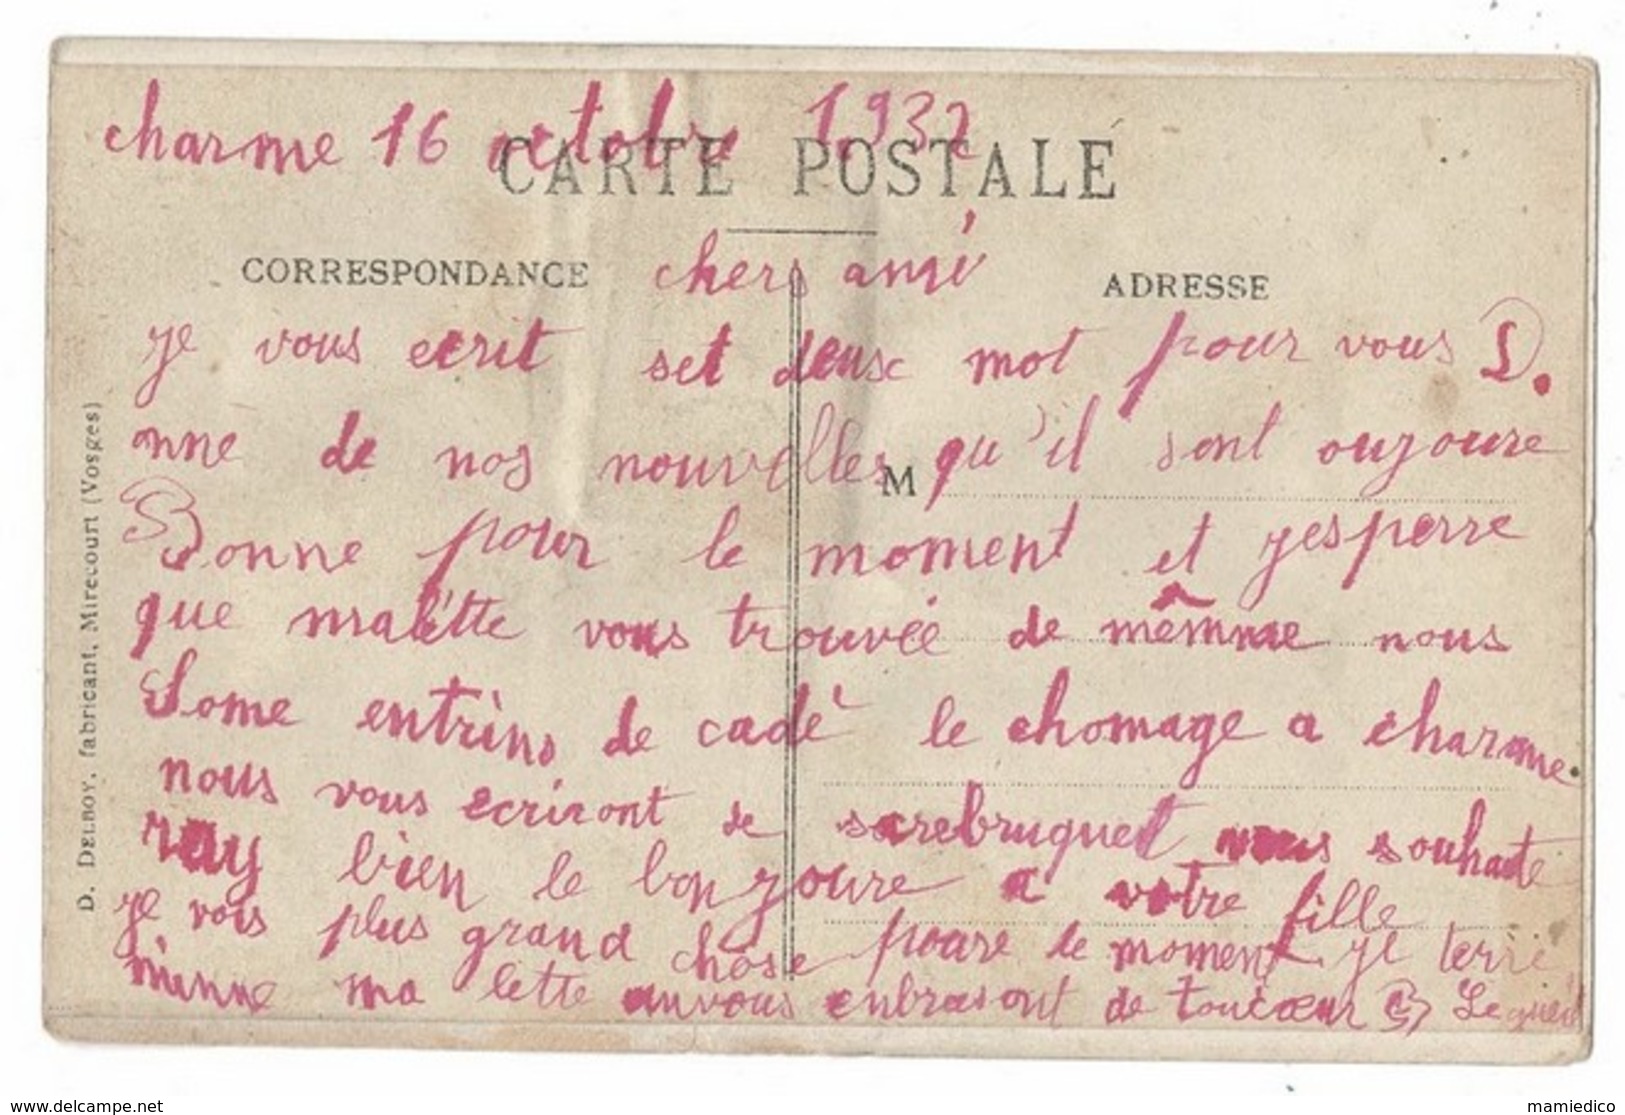 charme 16 octobre 1932
CARTE POSTALE
CORRESPONDANCE
chers ami
ADRESSE
je vous ecrit set deuse mot pour vous D.
onne de nos nouvelles qu'il sont oujoure
M
Bonne pour le moment et jesperre
que malétte vous trouvée de mêmme nous
Some entrins de cadè le chomage a charme.
nous vous ecriront de sarebruguet vous souhaite
ray bien le bonjoure a votre fille
je vois plus grand chose poure le moment je terri
minne ma lette anvous enbrasont de toucœur
D. DELBOY, fabricant, Mirecourt (Vosges)
mamiedico